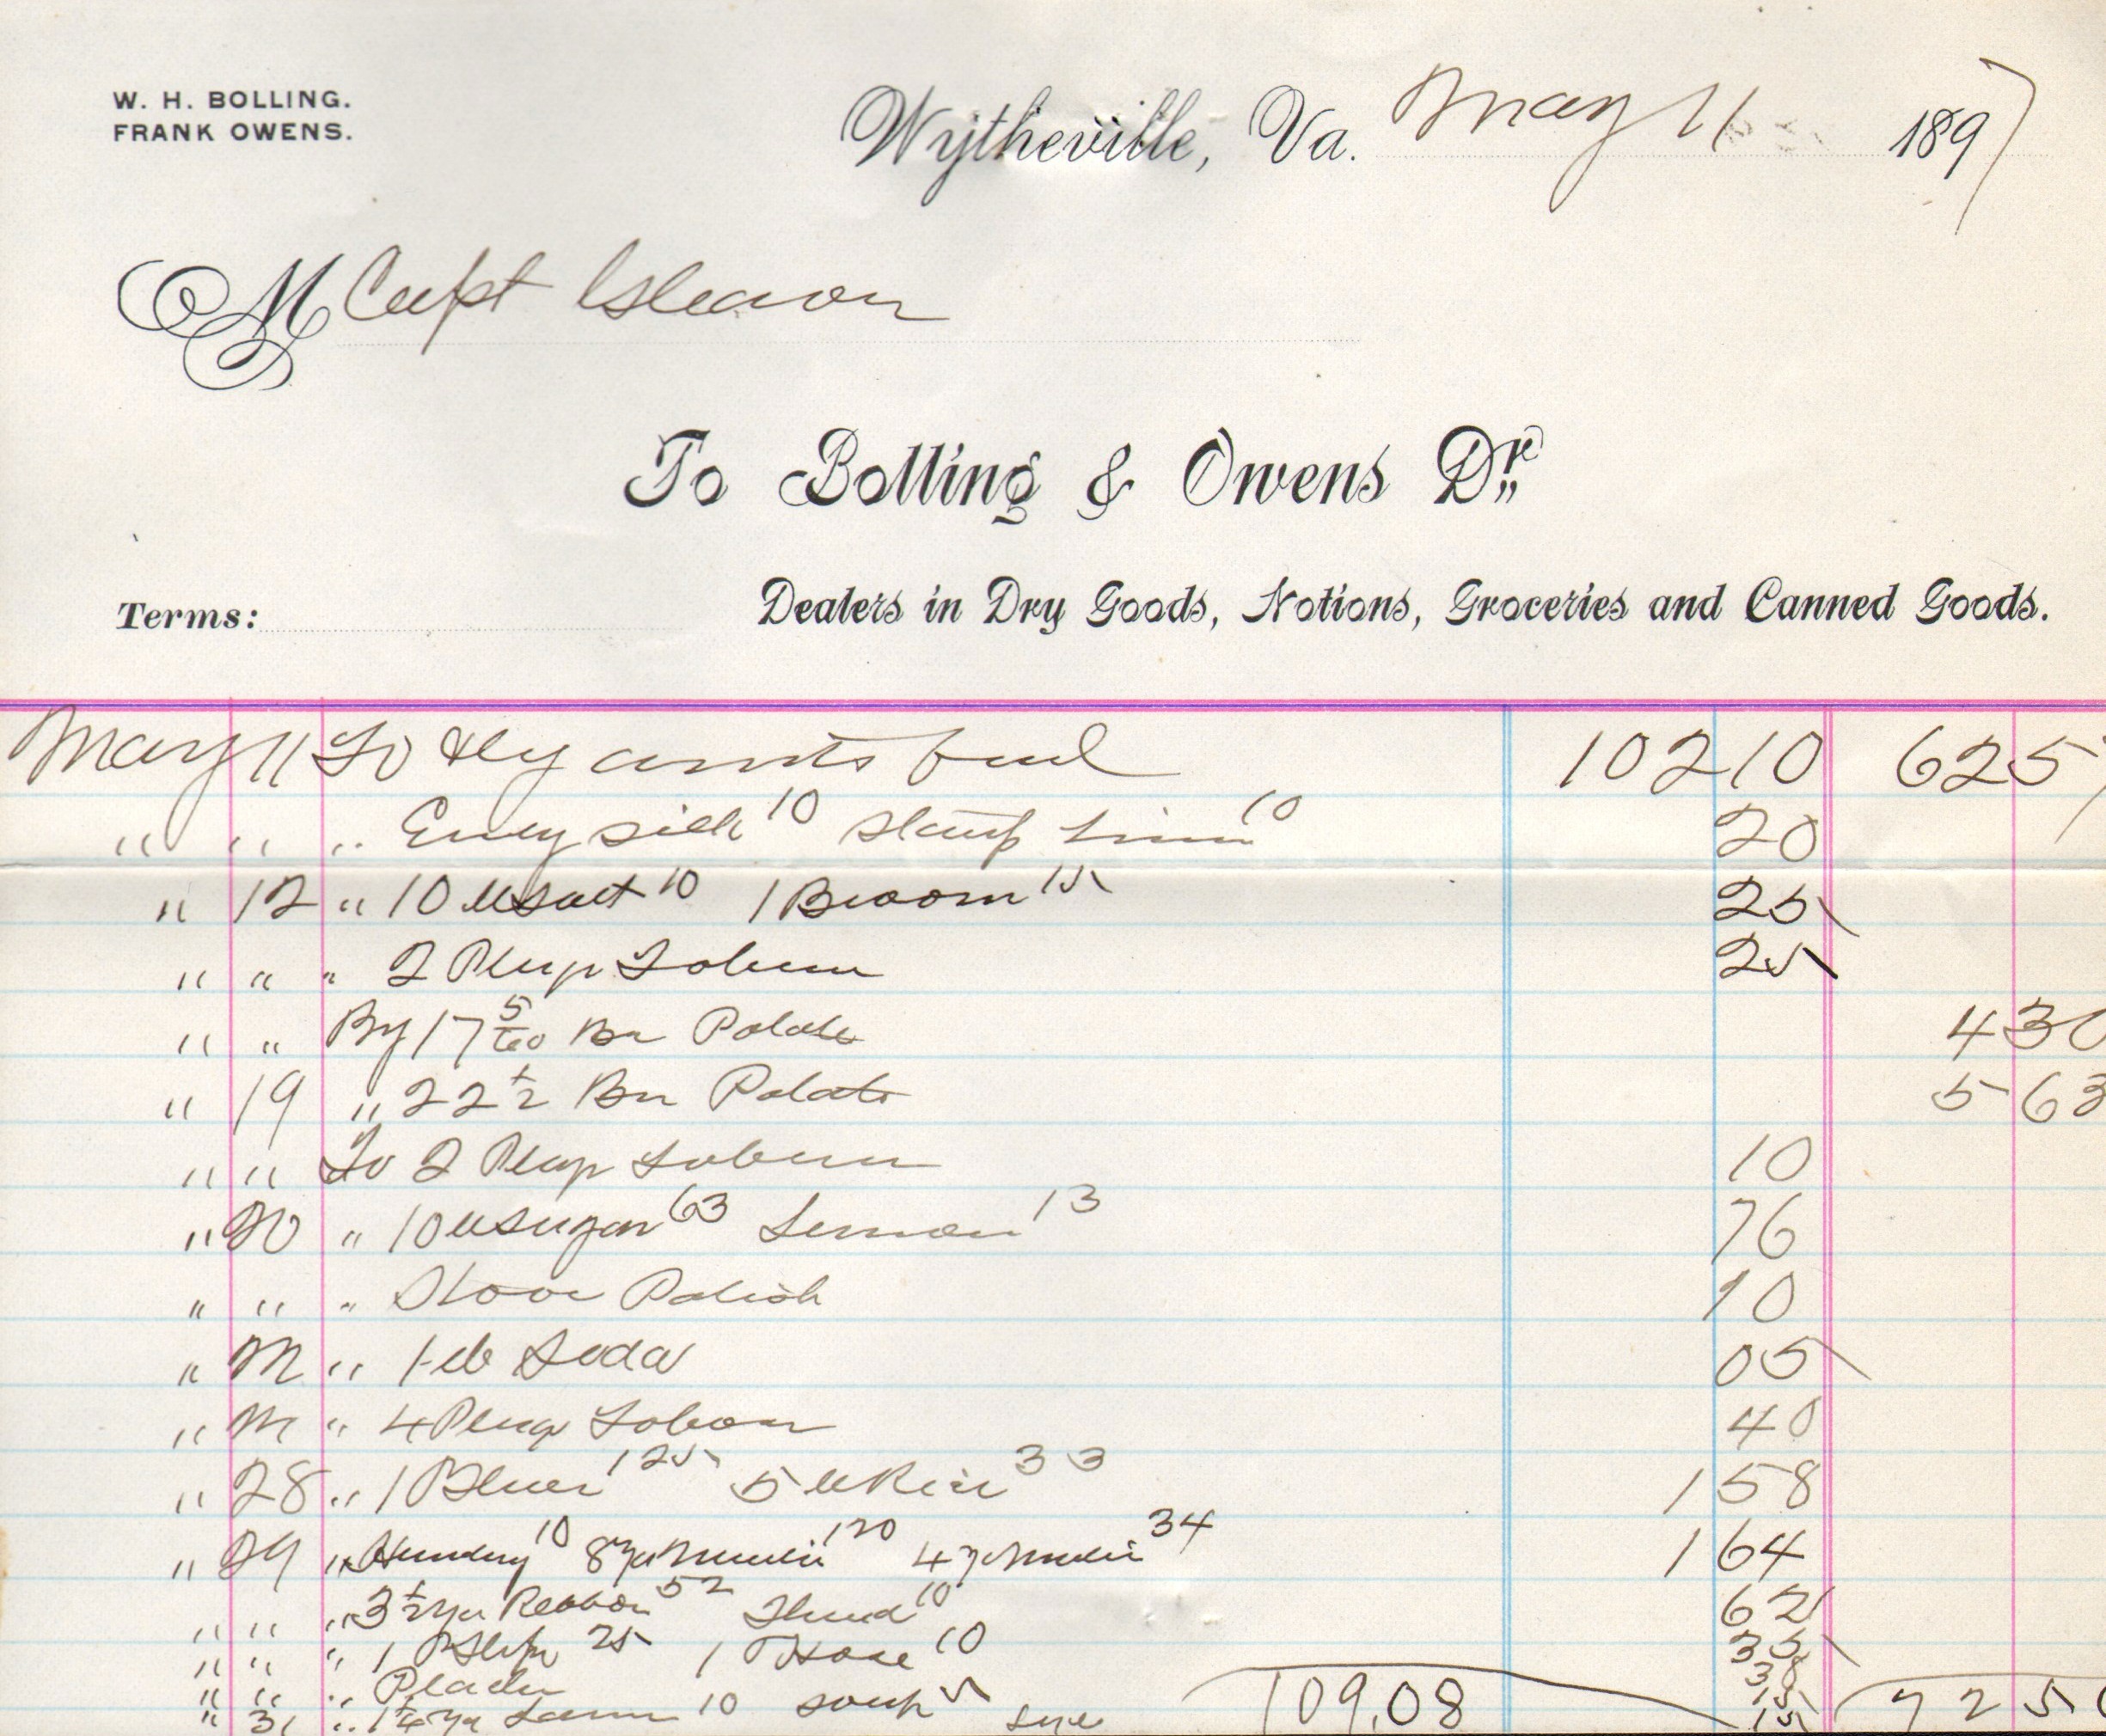 W. H. BOLLING.
FRANK OWENS.
Wytheville, Va. May 11 1897
M Capt Gleason
To Bolling & Owens Dr.
Terms:
Dealers in Dry Goods, Notions, Groceries and Canned Goods.
May 11 To 102 10 62 57
" " " Emery silk 10 20
" 12 " 10 lb Salt 10 1 Broom 15 25
" " " 2 Plugs Tobacco 25
" " By 17 5/60 Bu Potatoes 4 30
" 19 " 22 1/2 Bu Potatoes 5 63
" " To 2 Plugs Tobacco 10
" 20 " 10 lb Sugar 63 Lemon 13 76
" " " Stove Polish 10
" " 1 lb Soda 05
" " 4 Plugs Tobacco 40
" 28 " 1 125 5 lb Rice 33 1 58
" 29 " 10 8 yds Muslin 120 4 yds Muslin 34 1 64
" " " 3 1/2 yds Ribbon 52 Thread 10 62
" " " 1 25 1 Hose 10 35
" " " 38
15
" 31 " 10 soap 5 15
109.08 72 50